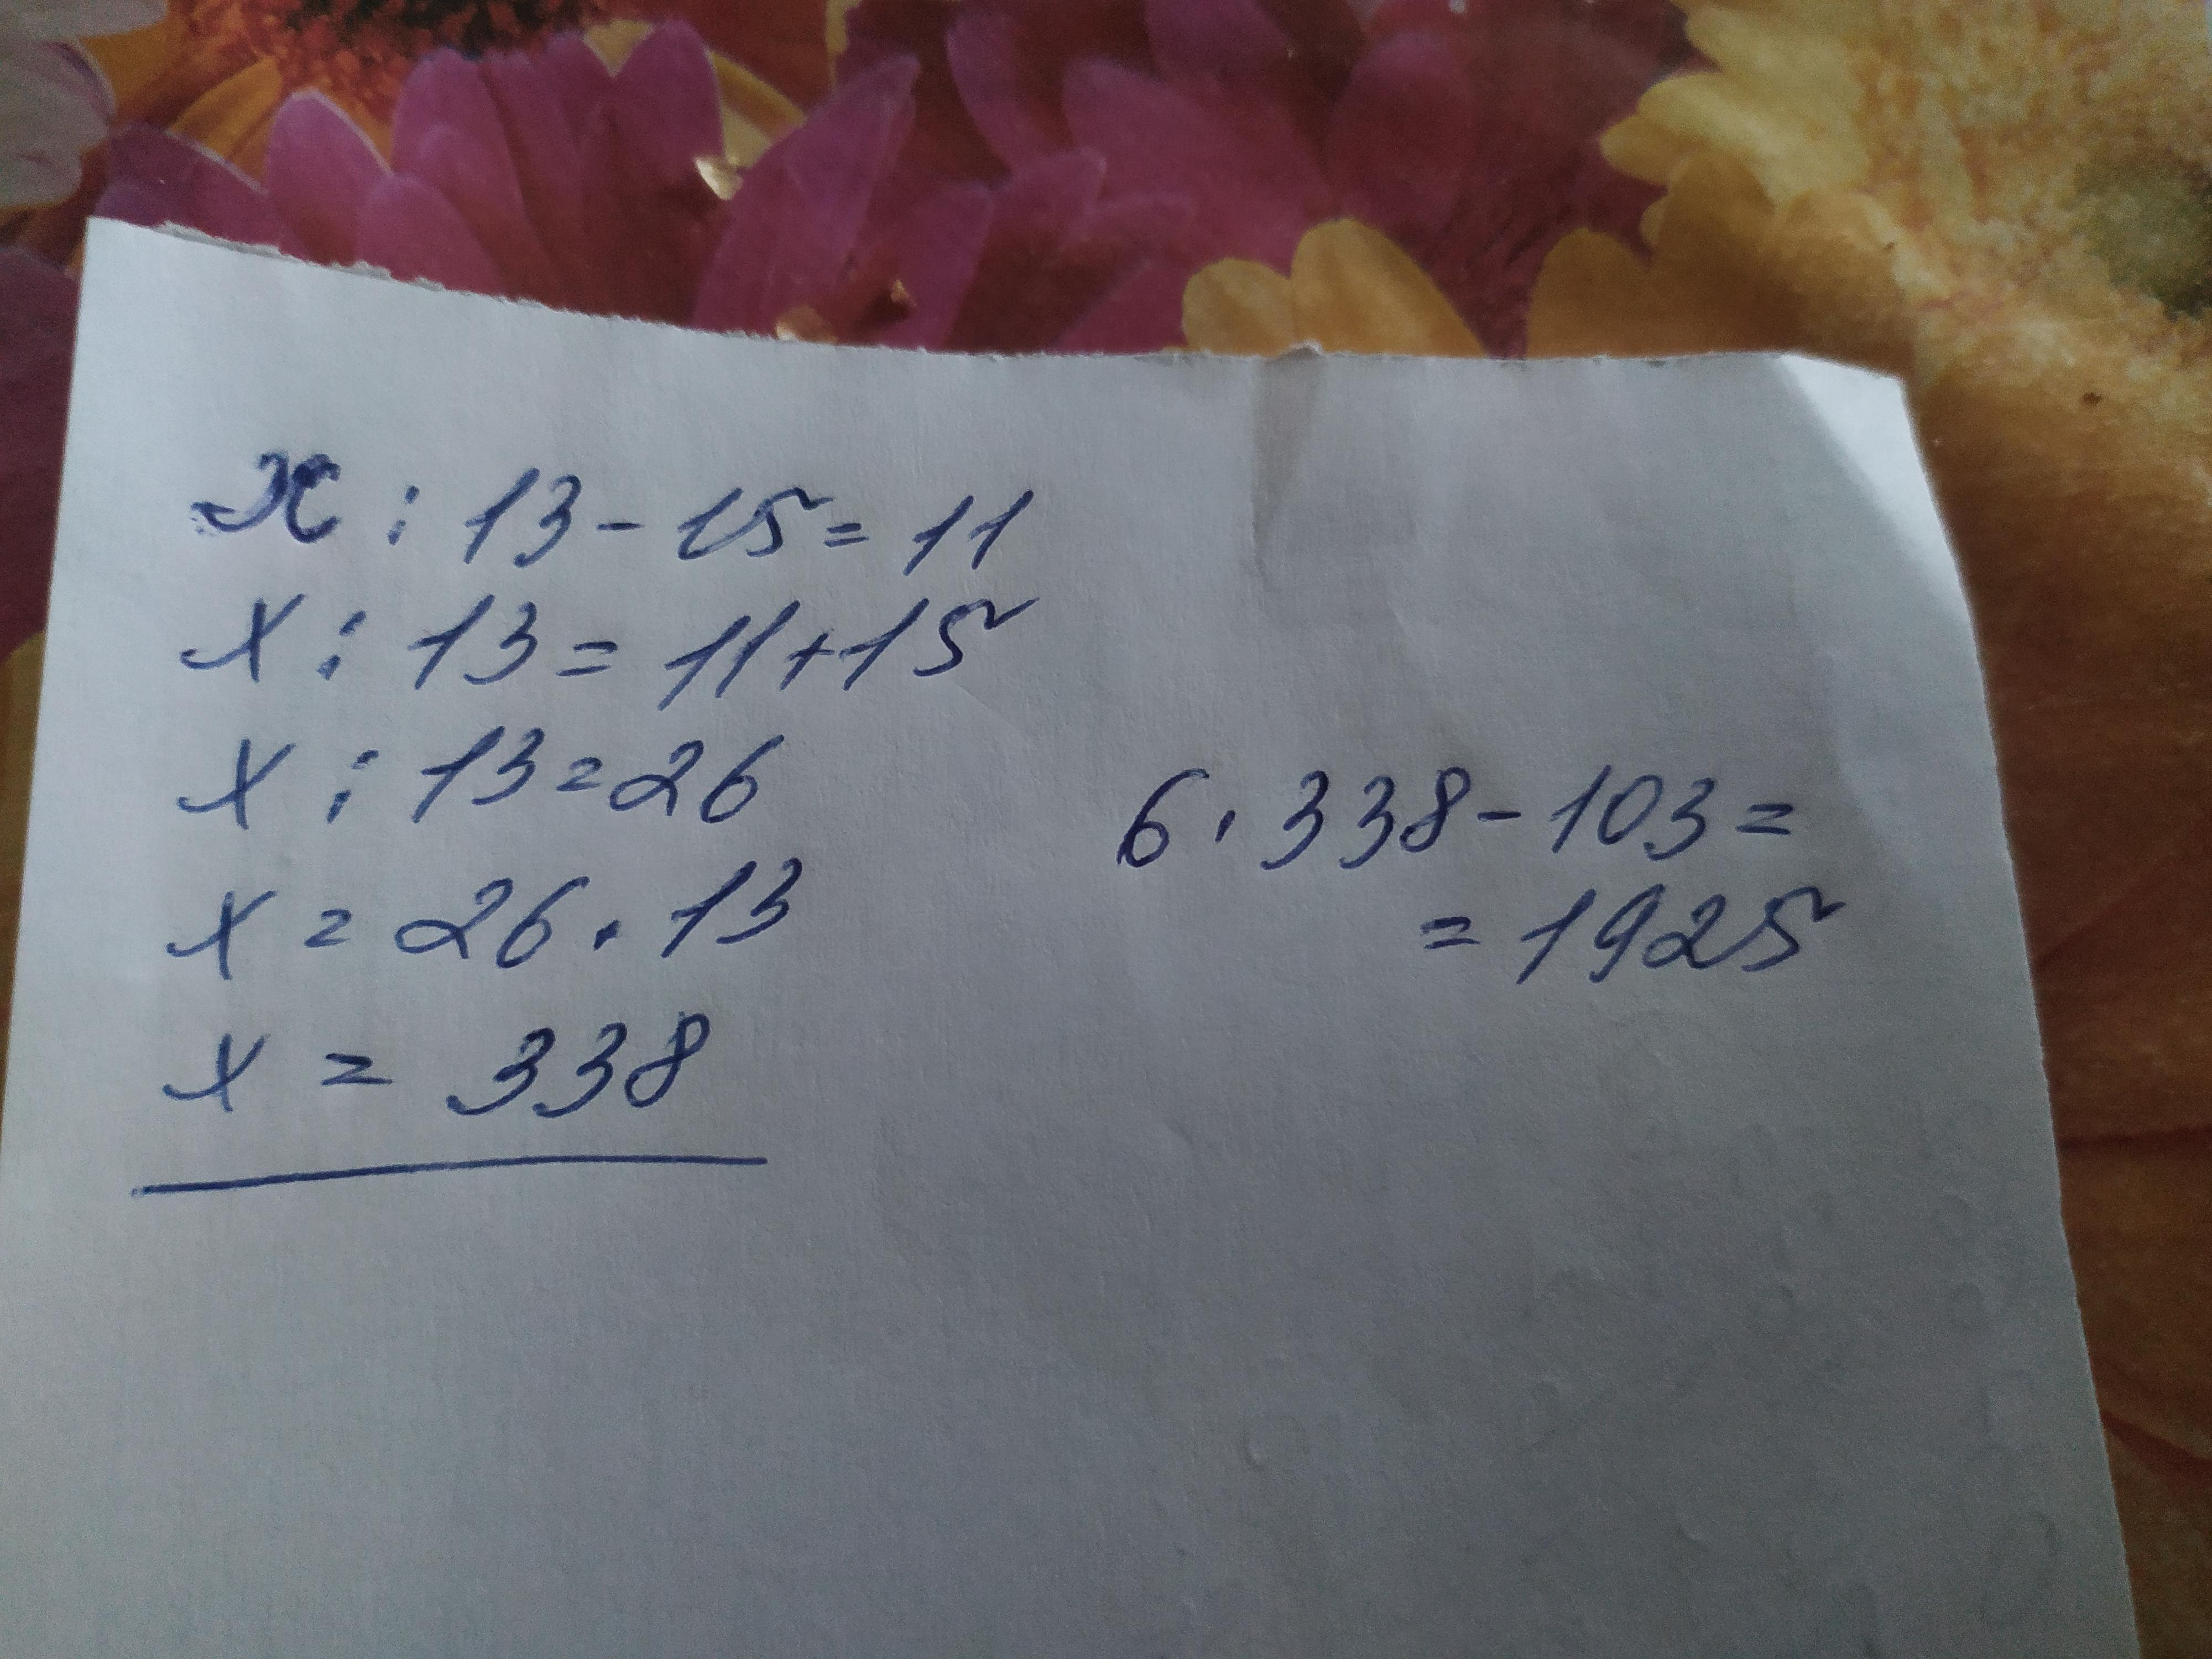 x : 13 - 15 = 11
x : 13 = 11 + 15
x : 13 = 26
x = 26 · 13
x = 338
6 · 338 - 103 =
= 1925